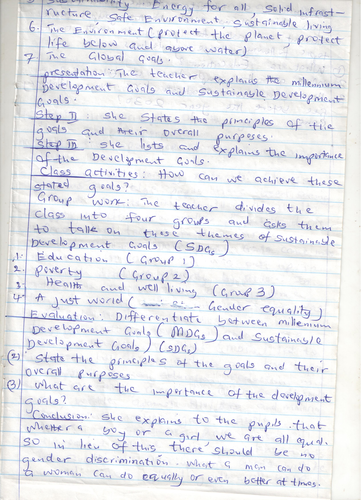 Sustainability Energy for all, Solid infrast-
ructure, Safe Environment, Sustainable living
6. The Environment (protect the planet, protect
life below and above water)
7 The Global Goals.
presentation: The teacher explains the millennium
Development Goals and Sustainable Development
Goals.
Step II: she states the principles of the
goals and their overall purposes.
Step III: she lists and explains the importance
of the Development Goals.
Class activities: How can we achieve these
stated goals?
Group work: The teacher divides the
class into four groups and asks them
to talk on these themes of Sustainable
Development Goals (SDGs)
1. Education (Group 1)
2. Poverty (Group 2)
3. Health and well living (Group 3)
4. A just world (Gender equality)
Evaluation: Differentiate between millennium
Development Goals (MDGs) and Sustainable
Development Goals) (SDGs)
(2) State the principles of the goals and their
overall purposes
(3) What are the importance of the development
goals?
Conclusion: she explains to the pupils that
whether a boy or a girl, we are all equal.
So in lieu of this, there should be no
gender discrimination. What a man can do
a woman can do equally or even better at times.